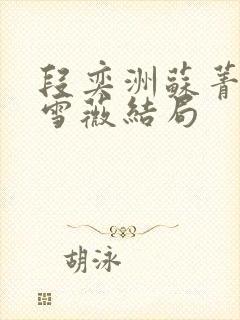 段奕洲蘇菁
雪薇結局
胡泳